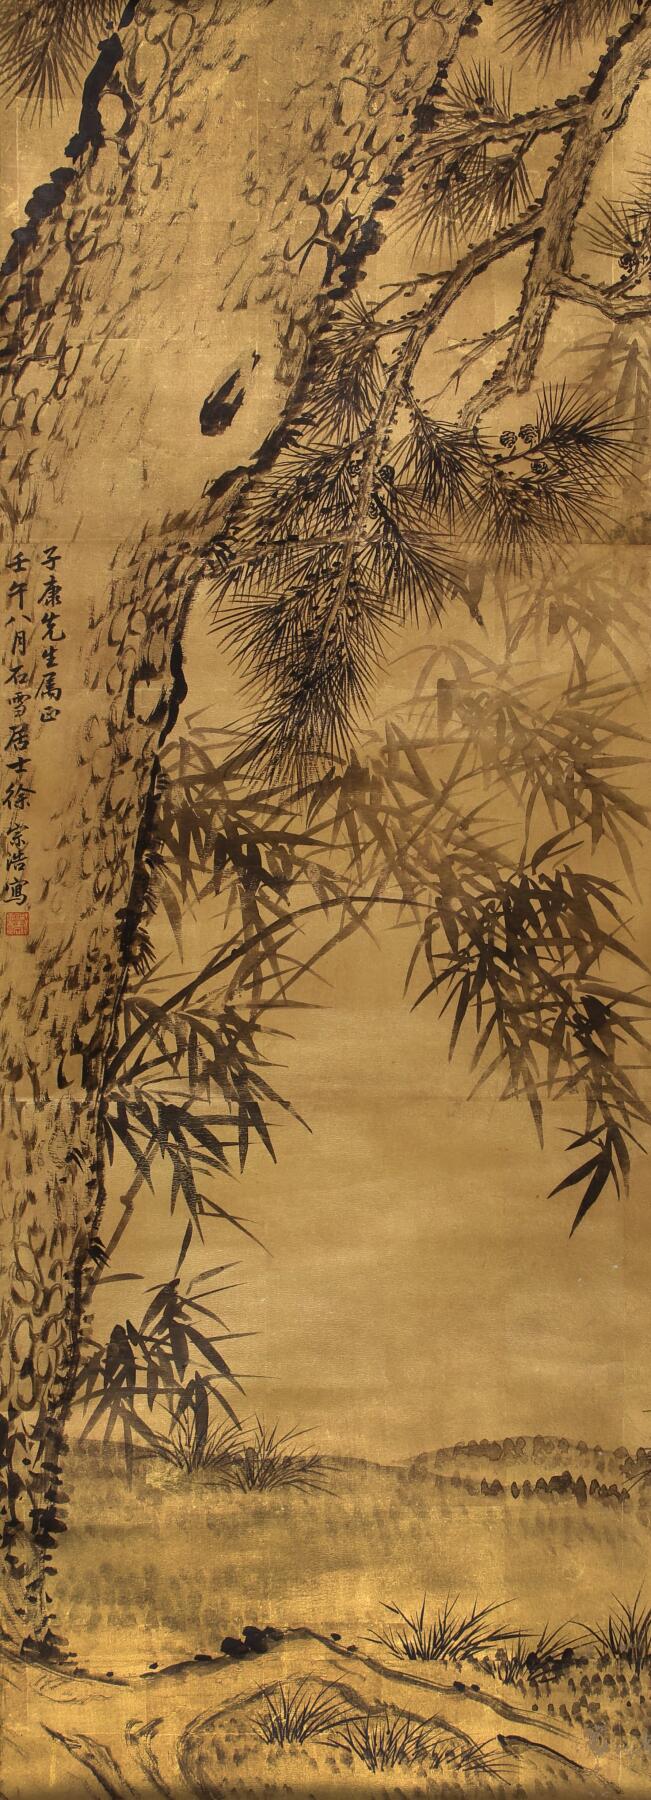 子康先生属正
壬午八月石雪居士徐宗浩寫